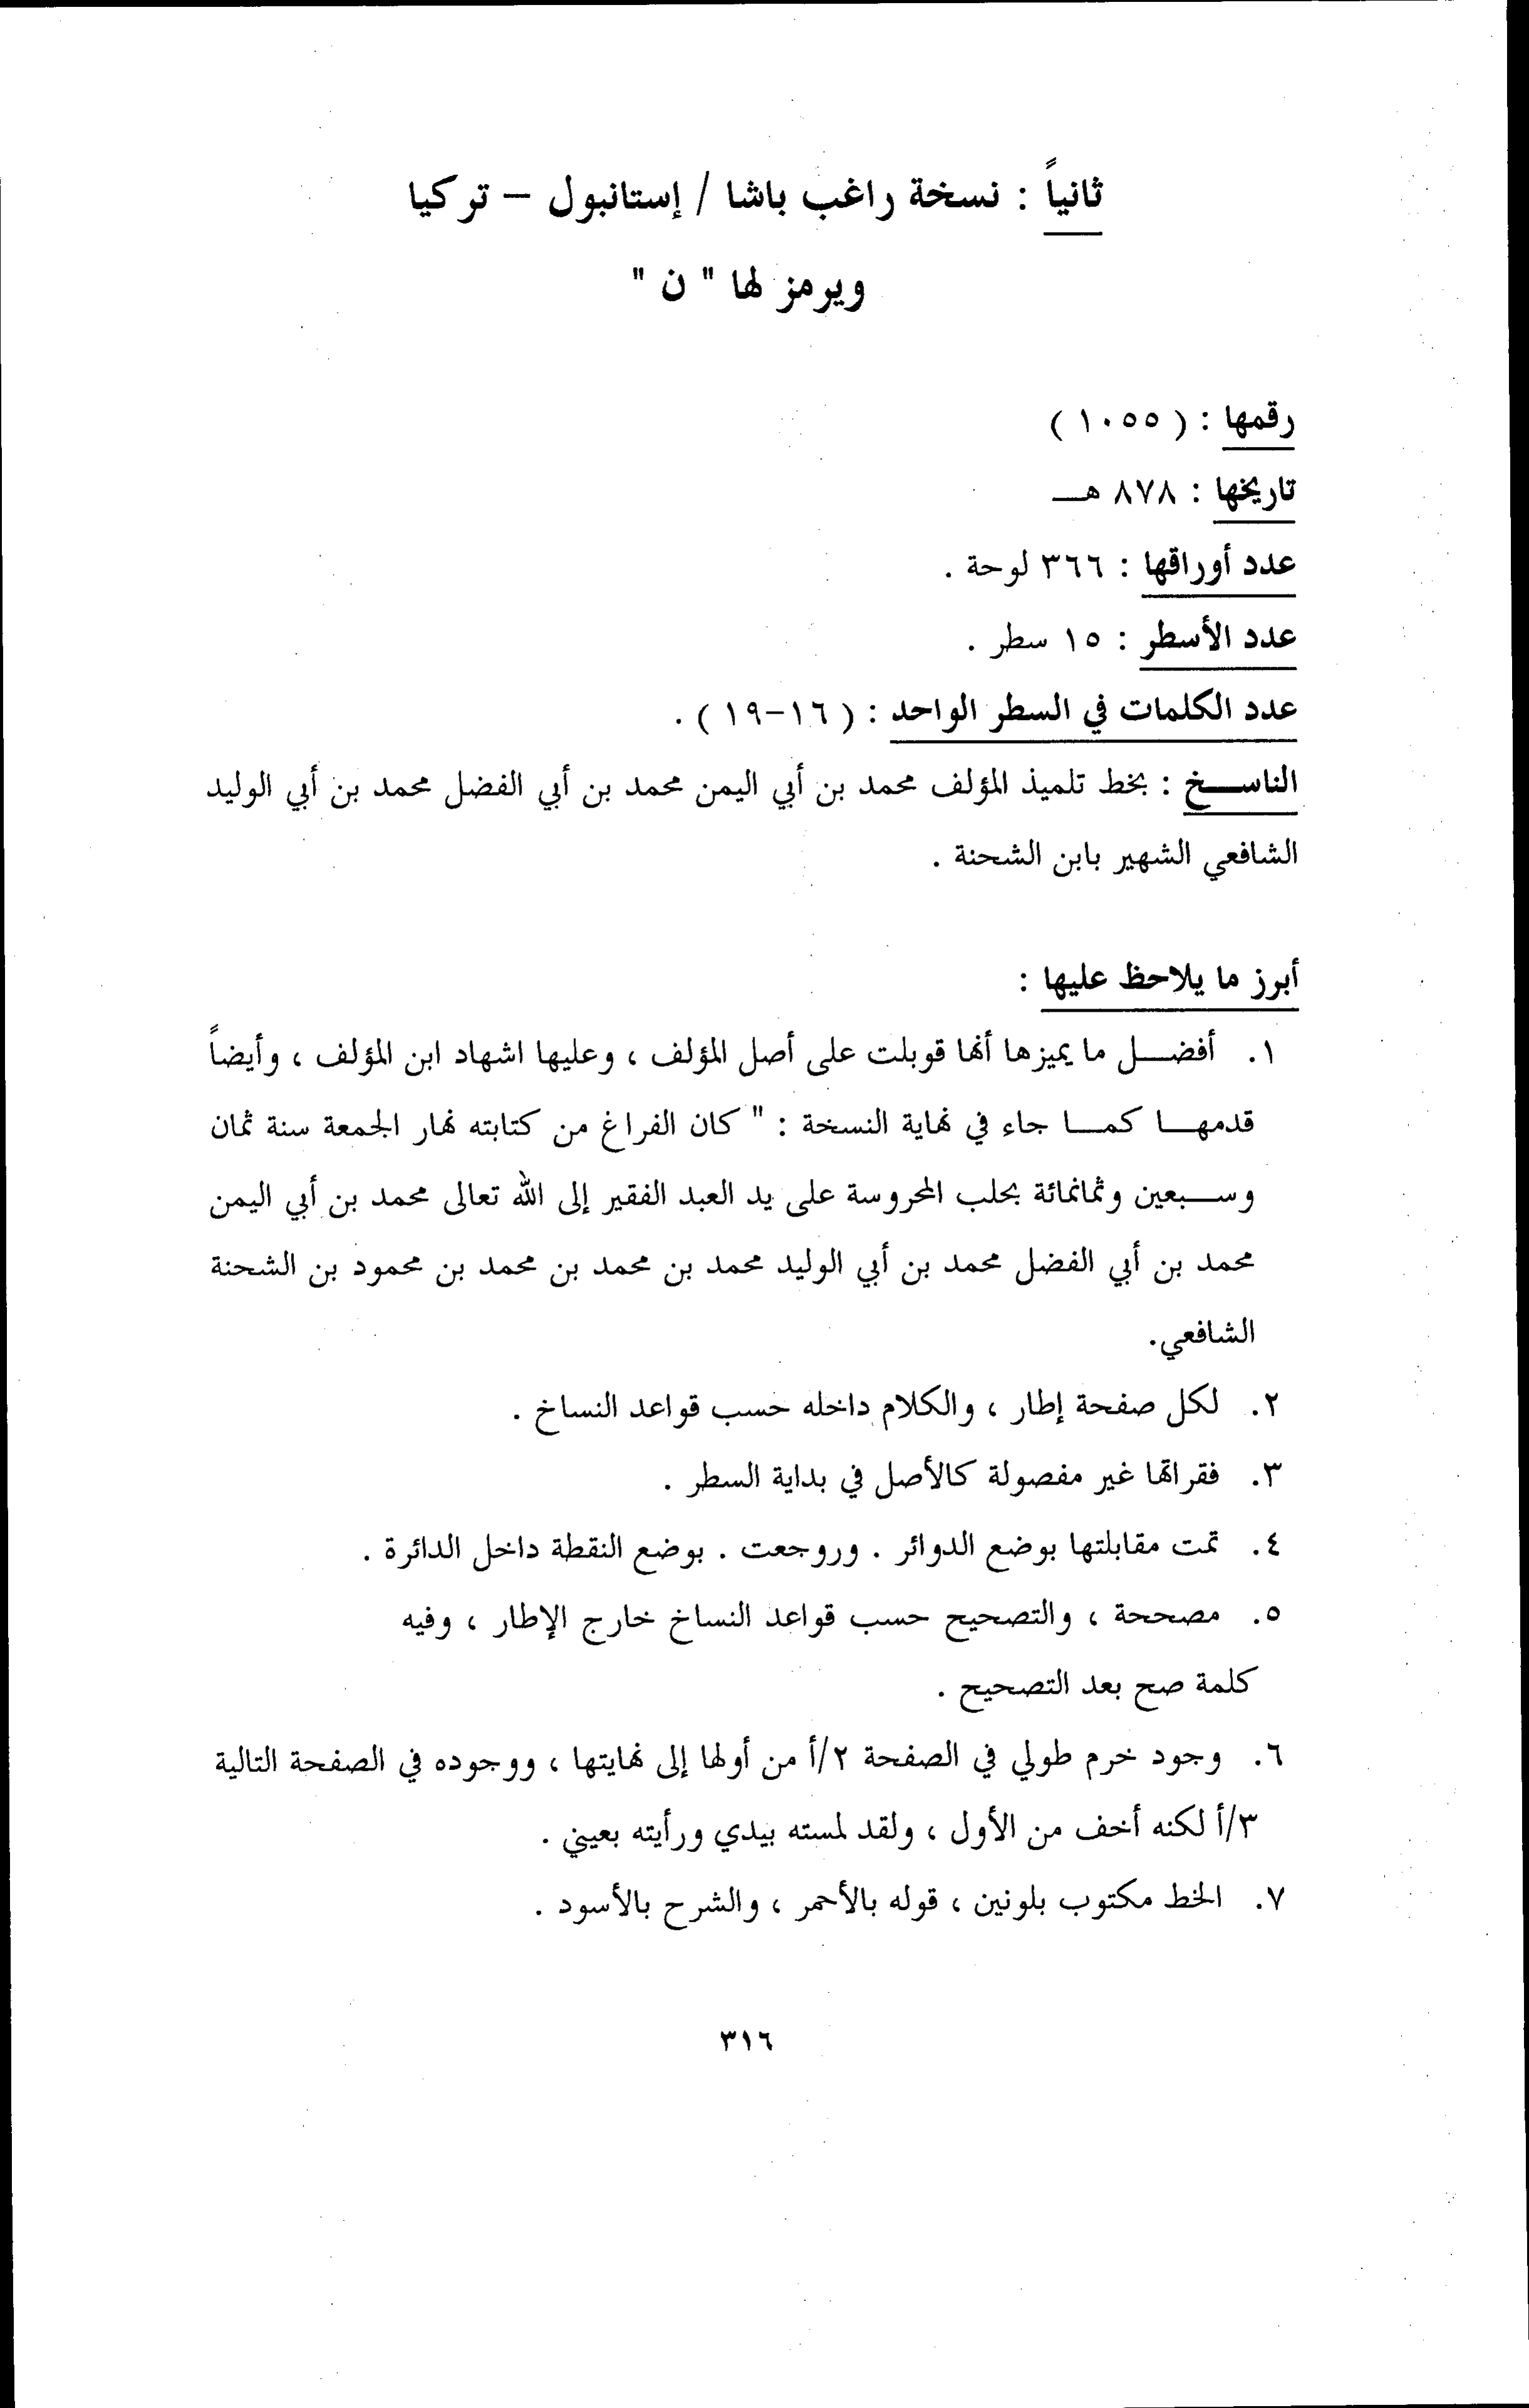 ثانياً : نسخة راغب باشا / إستانبول – تركيا
ويرمز لها " ن "
رقمها : ( ١٠٥٥ )
تاريخها : ٨٧٨ هـــ
عدد أوراقها : ٣٦٦ لوحة .
عدد الأسطر : ١٥ سطر .
عدد الكلمات في السطر الواحد : ( ١٦-١٩ ) .
الناســـخ : بخط تلميذ المؤلف محمد بن أبي اليمن محمد بن أبي الفضل محمد بن أبي الوليد
الشافعي الشهير بابن الشحنة .
أبرز ما يلاحظ عليها :
١. أفضـــل ما يميزها أنها قوبلت على أصل المؤلف ، وعليها اشهاد ابن المؤلف ، وأيضاً
قدمهـــا كمـــا جاء في نهاية النسخة : " كان الفراغ من كتابته نهار الجمعة سنة ثمان
وســـبعين وثمانمائة بحلب المحروسة على يد العبد الفقير إلى الله تعالى محمد بن أبي اليمن
محمد بن أبي الفضل محمد بن أبي الوليد محمد بن محمد بن محمد بن محمود بن الشحنة
الشافعي.
٢. لكل صفحة إطار ، والكلام داخله حسب قواعد النساخ .
٣. فقراتها غير مفصولة كالأصل في بداية السطر .
٤. تمت مقابلتها بوضع الدوائر . وروجعت . بوضع النقطة داخل الدائرة .
٥. مصححة ، والتصحيح حسب قواعد النساخ خارج الإطار ، وفيه
كلمة صح بعد التصحيح .
٦. وجود خرم طولي في الصفحة ٢/أ من أولها إلى نهايتها ، ووجوده في الصفحة التالية
٣/أ لكنه أخف من الأول ، ولقد لمسته بيدي ورأيته بعيني .
٧. الخط مكتوب بلونين ، قوله بالأحمر ، والشرح بالأسود .
٣١٦